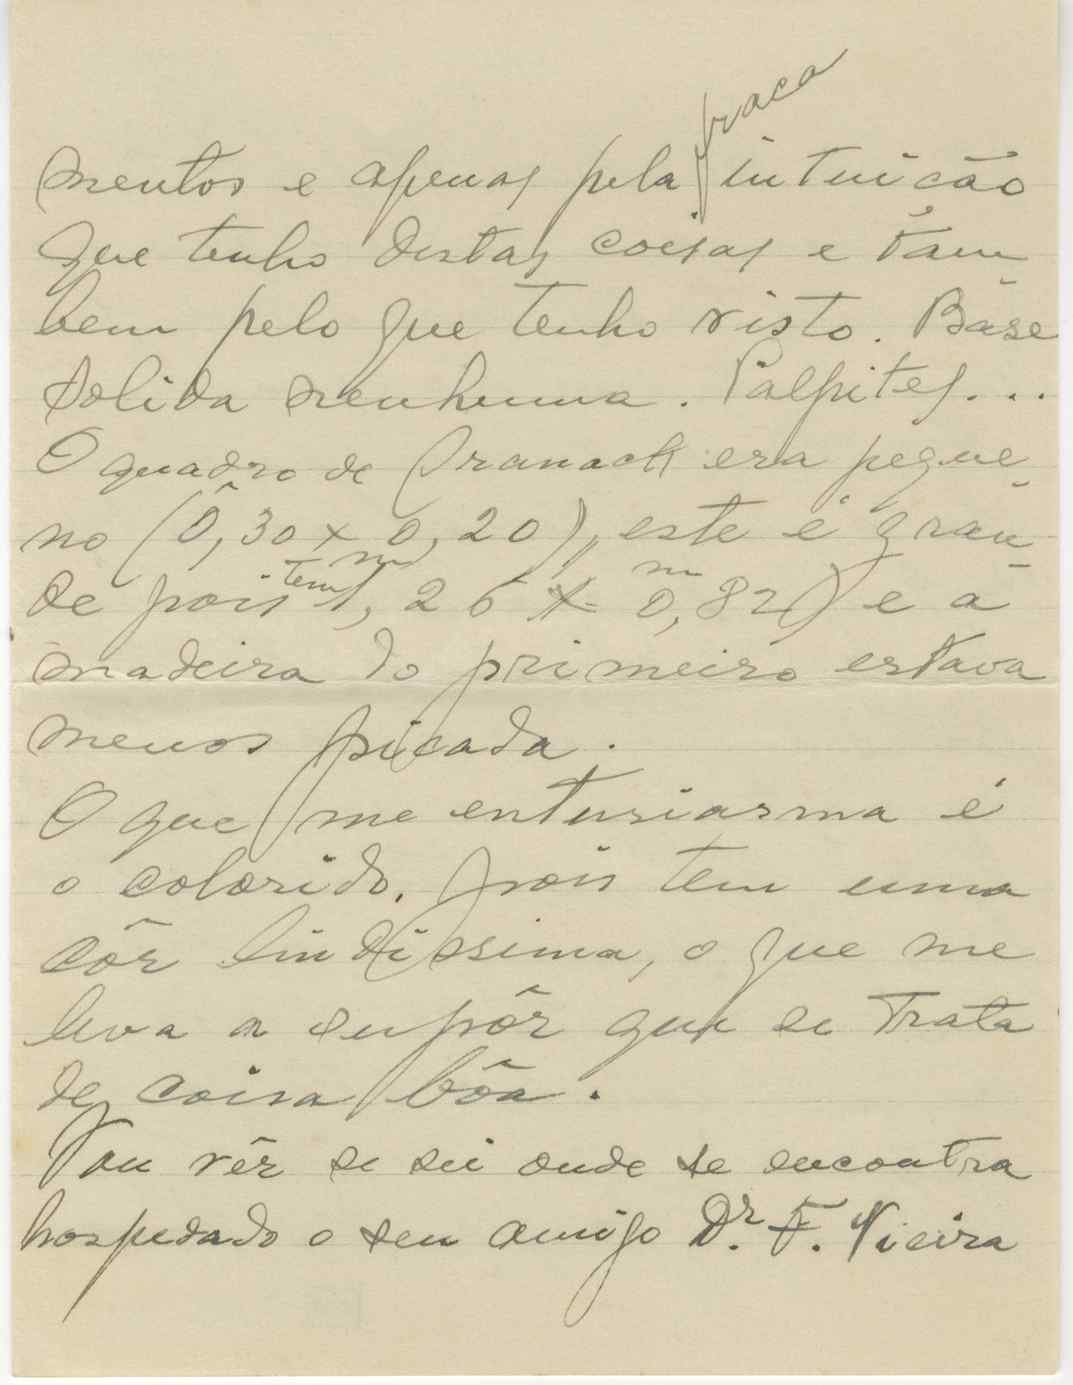 fraca
mentos e apenas pela intuição
que tenho destas coisas e tam
bem pelo que tenho visto. Báse
solida nenhuma. Palpites...
O quadro de Cranach era peque
no (0,30 x 0,20), este é gran-
de pois tem 1,m26 x 0,m82) e a
madeira do primeiro estava
menos picada.
O que me entusiasma é
o colorido, pois tem uma
côr lindissima, o que me
leva a supôr que se trata
de coisa bôa.
Vou vêr se sei onde se encontra
hospedado o seu amigo Dr. F. Vieira